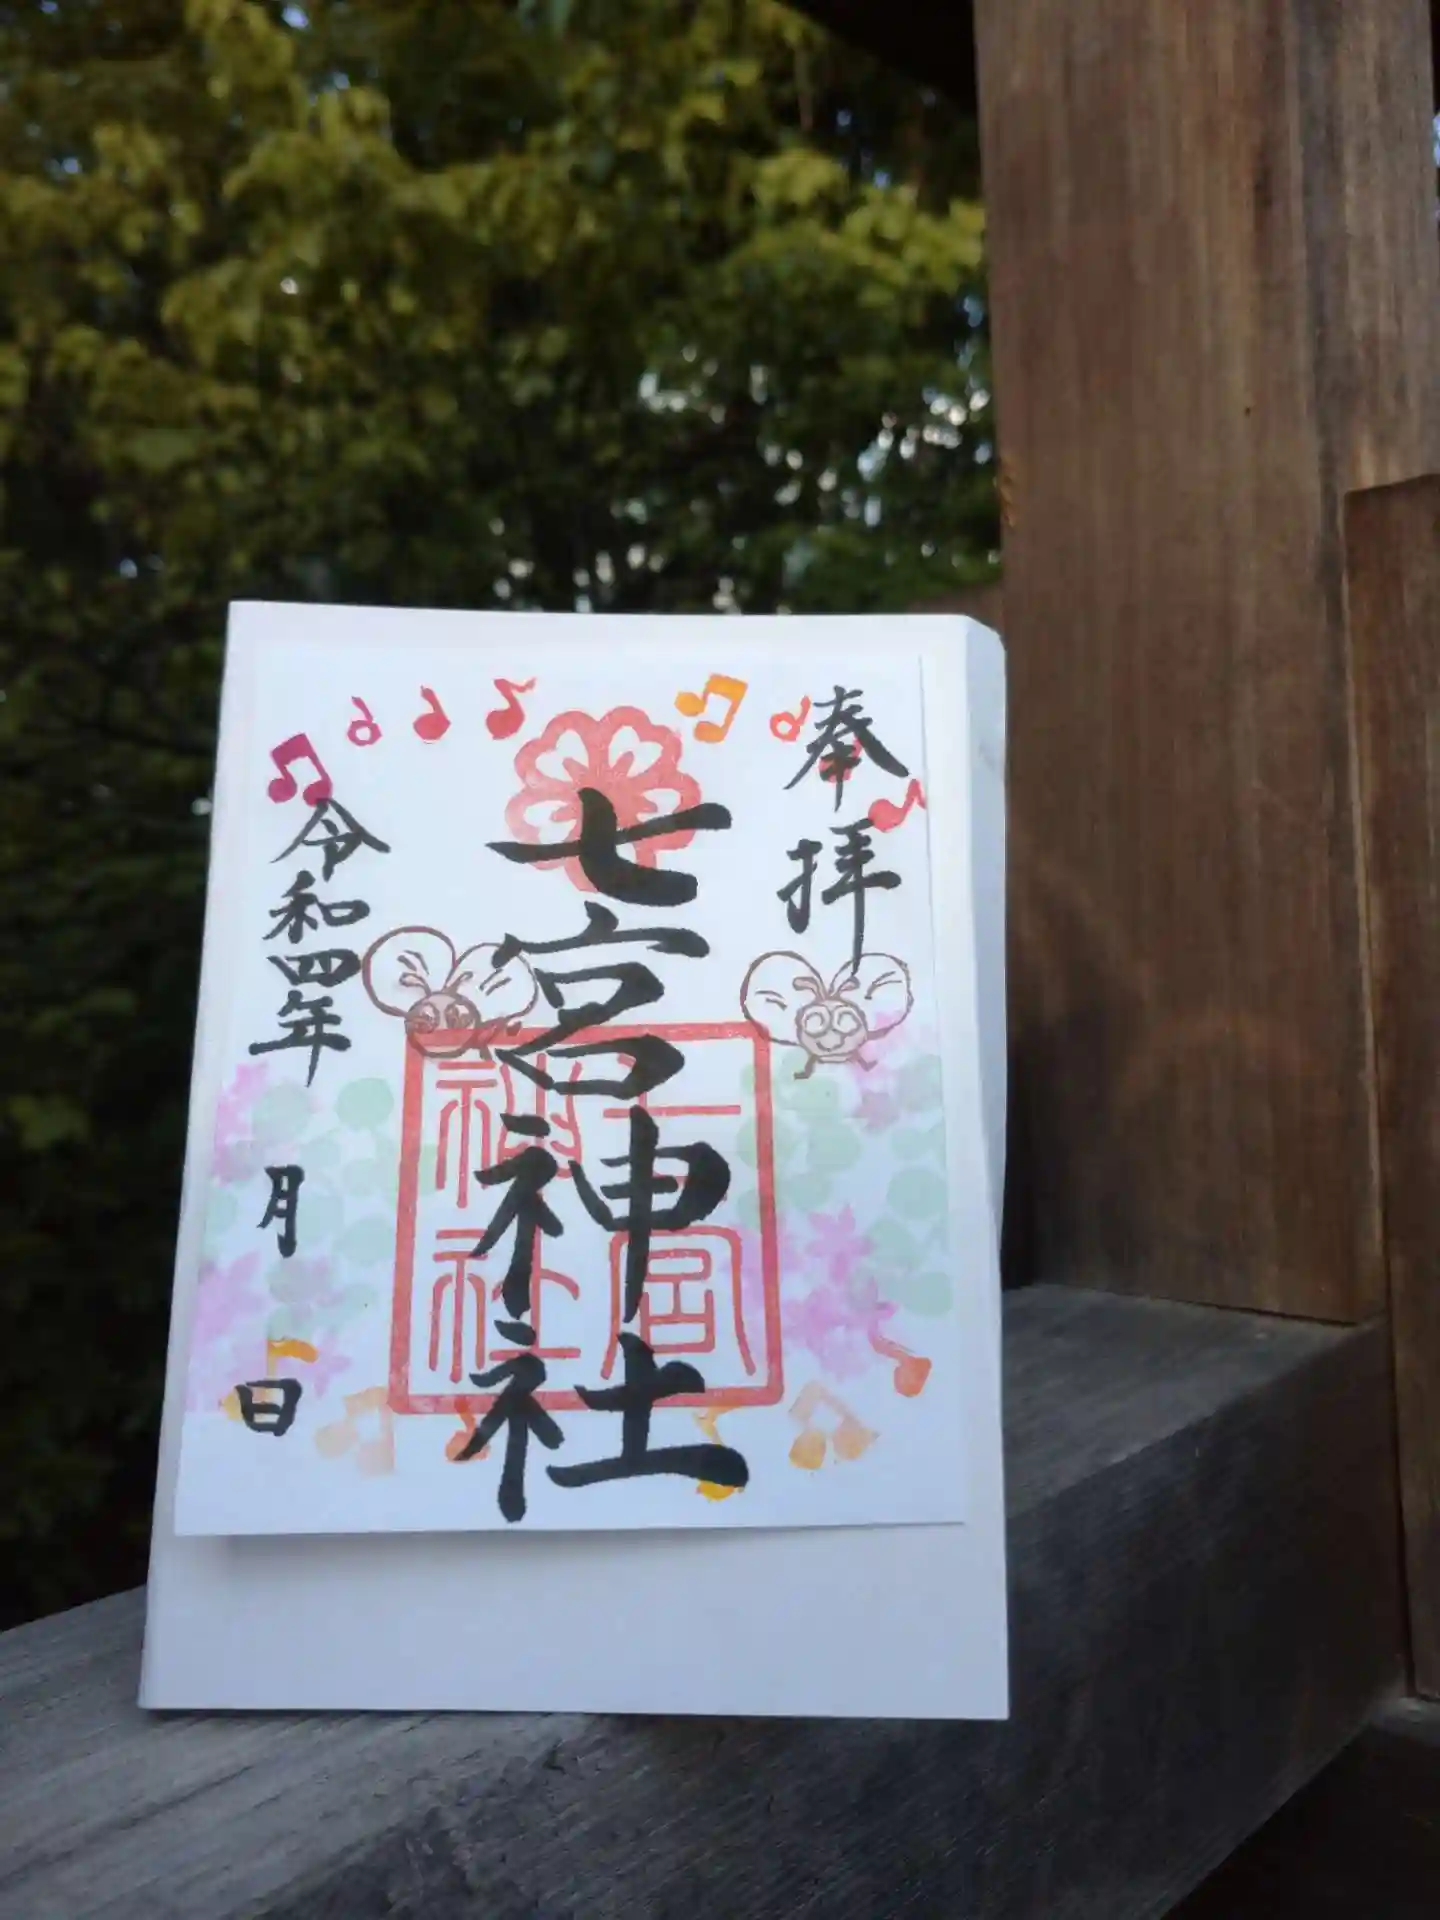 奉拝
七宮神社
七宮
神社
令和四年 月 日